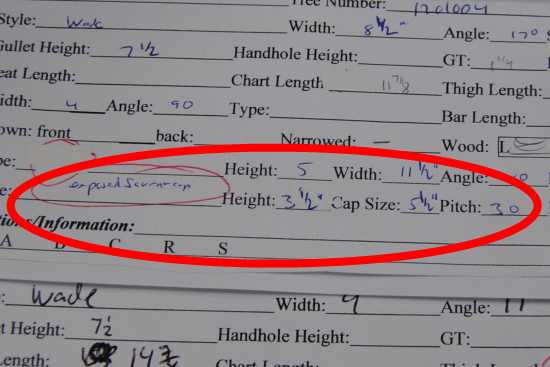 Tree Number: 1201004
Style: Wade Width: 8 1/2" Angle: 17°
Gullet Height: 7 1/2 Handhole Height: GT: 1 1/4
eat Length: Chart Length 11 7/8 Thigh Length:
idth: 4 Angle: 90 Type: Bar Length:
own: front back: Narrowed: — Wood: L
pe: Height: 5 Width: 11 1/2" Angle:
e: exposed Height: 3 1/2" Cap Size: 5 1/2" Pitch: 30
tions/Information:
A B C R S
: Wade Width: 4 Angle: 11
t Height: 7 1/2 Handhole Height: GT:
Length: 14 Chart Length: